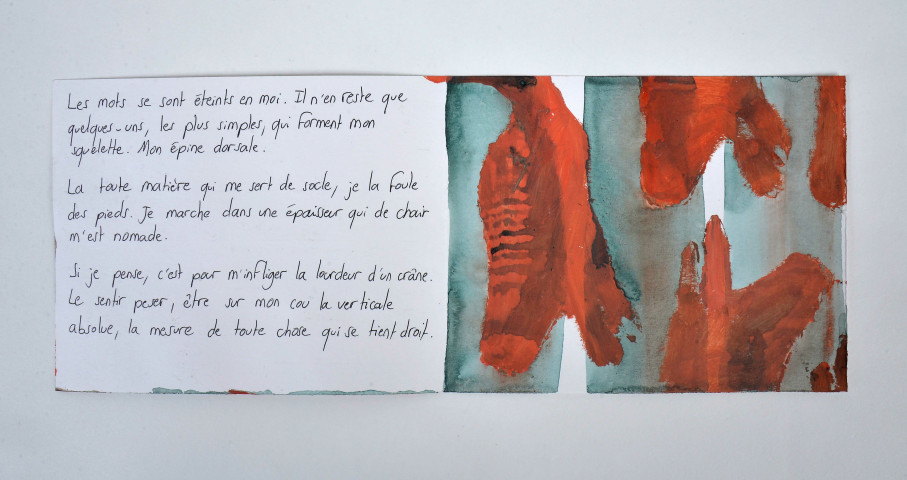 Les mots se sont éteints en moi. Il n'en reste que
quelques-uns, les plus simples, qui forment mon
squelette. Mon épine dorsale.
La toute matière qui me sert de socle, je la foule
des pieds. Je marche dans une épaisseur qui de chair
m'est nomade.
Si je pense, c'est pour m'infliger la lourdeur d'un crâne.
Le sentir peser, être sur mon cou la verticale
absolue, la mesure de toute chose qui se tient droit.